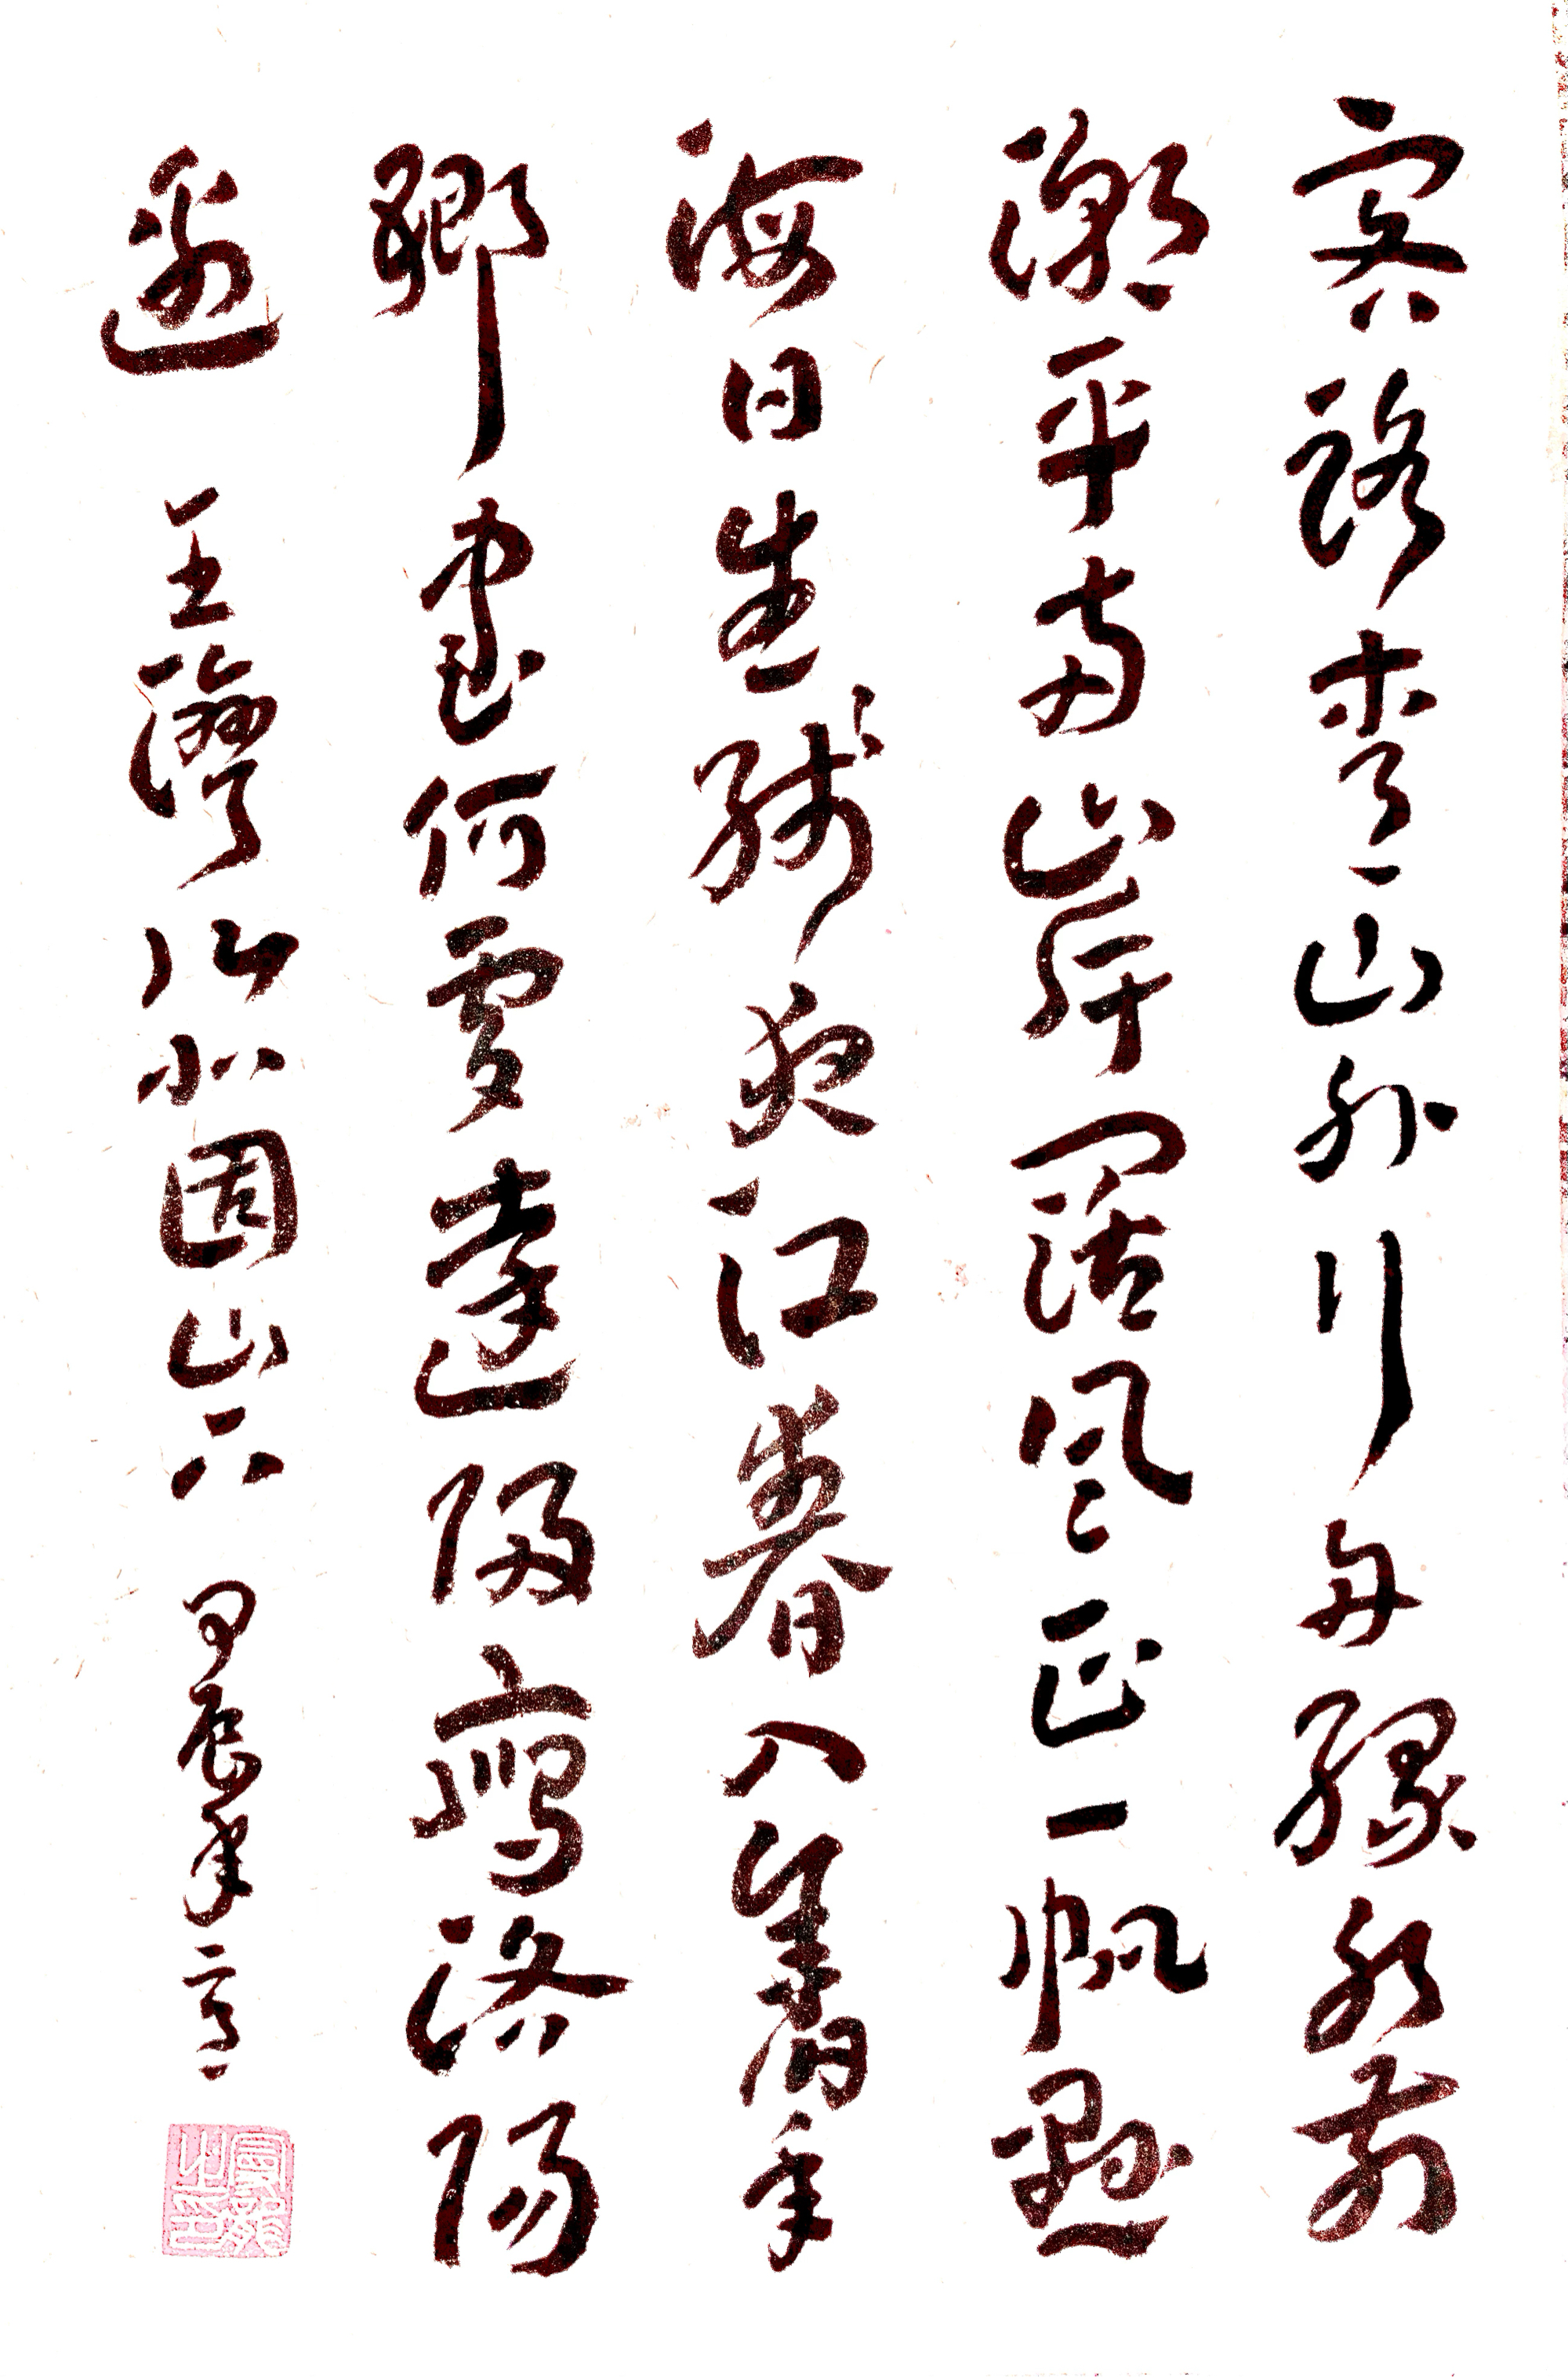 客路青山外行舟綠水前
潮平兩岸闊風正一帆懸
海日生殘夜江春入舊年
鄉書何處達歸鴈洛陽
邊 王灣次北固山下 甲辰年